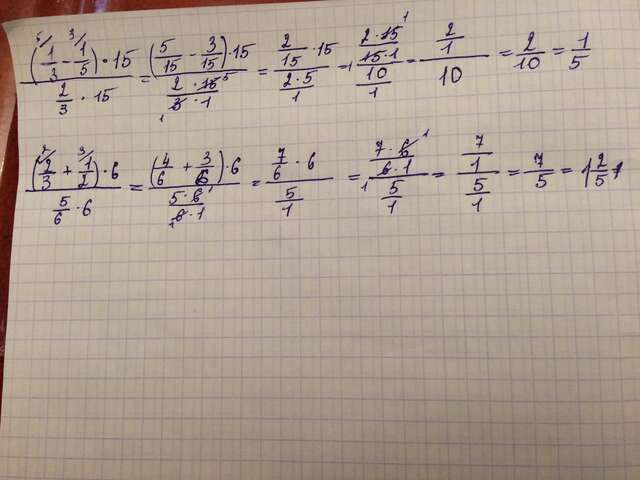 ((⁵⁄1/3 - ³⁄1/5) · 15) / (2/3 · 15) = ((5/15 - 3/15) · 15) / (2 · 15 / 3 · 1) = (2/15 · 15) / (2 · 5 / 1) = (2 · 15 / 15 · 1) / (10/1) = (2/1) / 10 = 2/10 = 1/5
((²⁄2/3 + ³⁄1/2) · 6) / (5/6 · 6) = ((4/6 + 3/6) · 6) / (5 · 6 / 6 · 1) = (7/6 · 6) / (5/1) = (7 · 6 / 6 · 1) / (5/1) = (7/1) / (5/1) = 7/5 = 1 2/5